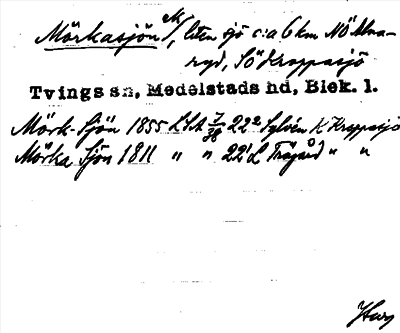 Mörkasjön N/, liten sjö c:a 6 km NÖ Alna-
ryd, SÖ Kroppsjö
Tvings sn, Medelstads hd, Blek. l.
Mörk-Sjön 1855 LSA 22² Sylvén K Kroppsjö
Mörka Sjön 1811 " " 22¹ L Trägård " "